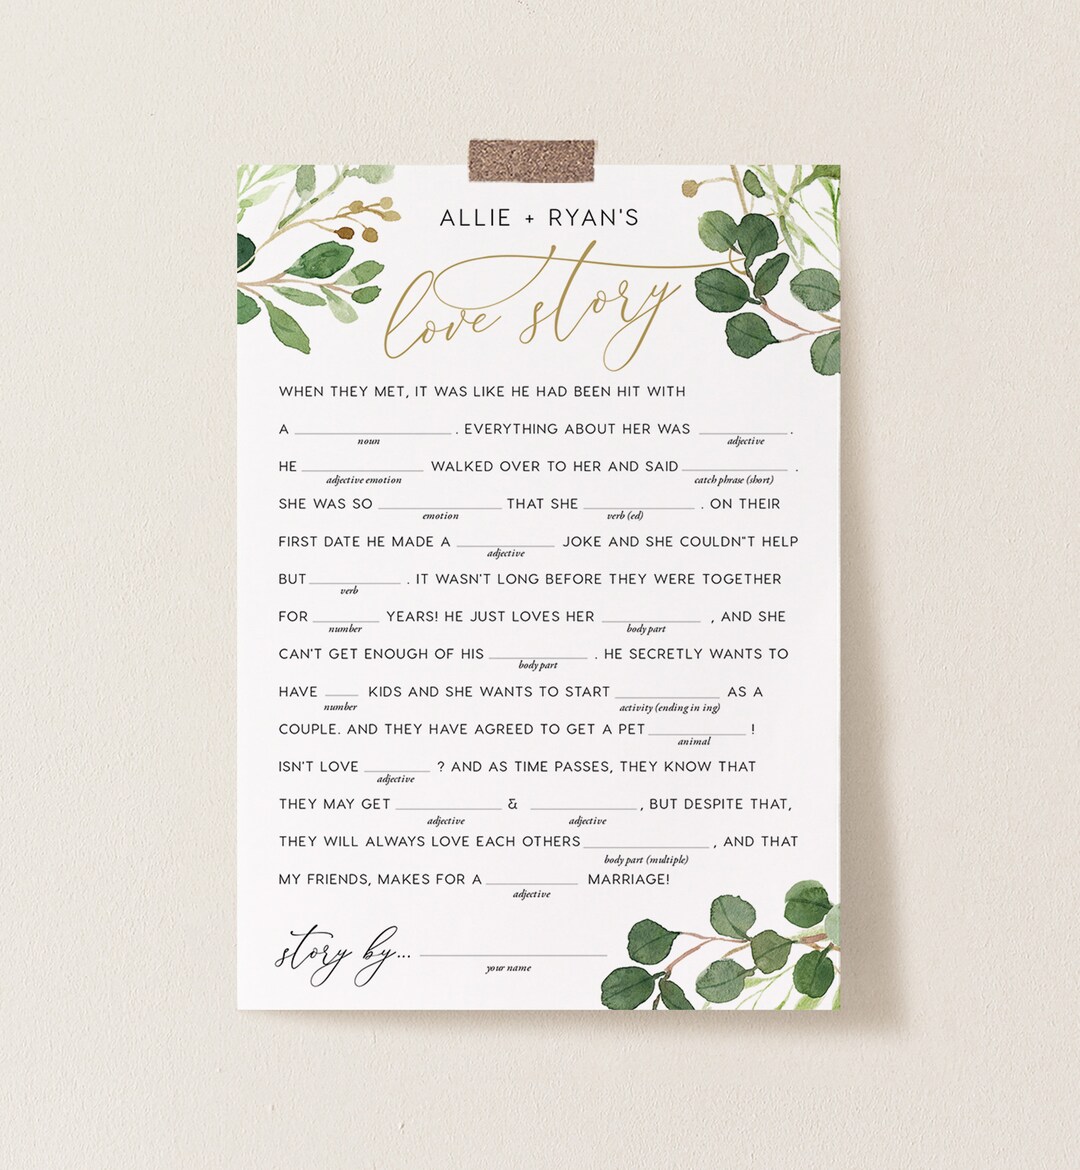 ALLIE + RYAN'S
love story
WHEN THEY MET, IT WAS LIKE HE HAD BEEN HIT WITH
A ____________ . EVERYTHING ABOUT HER WAS ________ .
noun adjective
HE __________ WALKED OVER TO HER AND SAID ________ .
adjective emotion catch phrase (short)
SHE WAS SO __________ THAT SHE _________ . ON THEIR
emotion verb (ed)
FIRST DATE HE MADE A ________ JOKE AND SHE COULDN"T HELP
adjective
BUT ________ . IT WASN'T LONG BEFORE THEY WERE TOGETHER
verb
FOR ______ YEARS! HE JUST LOVES HER ________ , AND SHE
number body part
CAN'T GET ENOUGH OF HIS ________ . HE SECRETLY WANTS TO
body part
HAVE ___ KIDS AND SHE WANTS TO START ________ AS A
number activity (ending in ing)
COUPLE. AND THEY HAVE AGREED TO GET A PET ________ !
animal
ISN'T LOVE ______ ? AND AS TIME PASSES, THEY KNOW THAT
adjective
THEY MAY GET ________ & ________ , BUT DESPITE THAT,
adjective adjective
THEY WILL ALWAYS LOVE EACH OTHERS __________ , AND THAT
body part (multiple)
MY FRIENDS, MAKES FOR A ________ MARRIAGE!
adjective
story by... ______________
your name